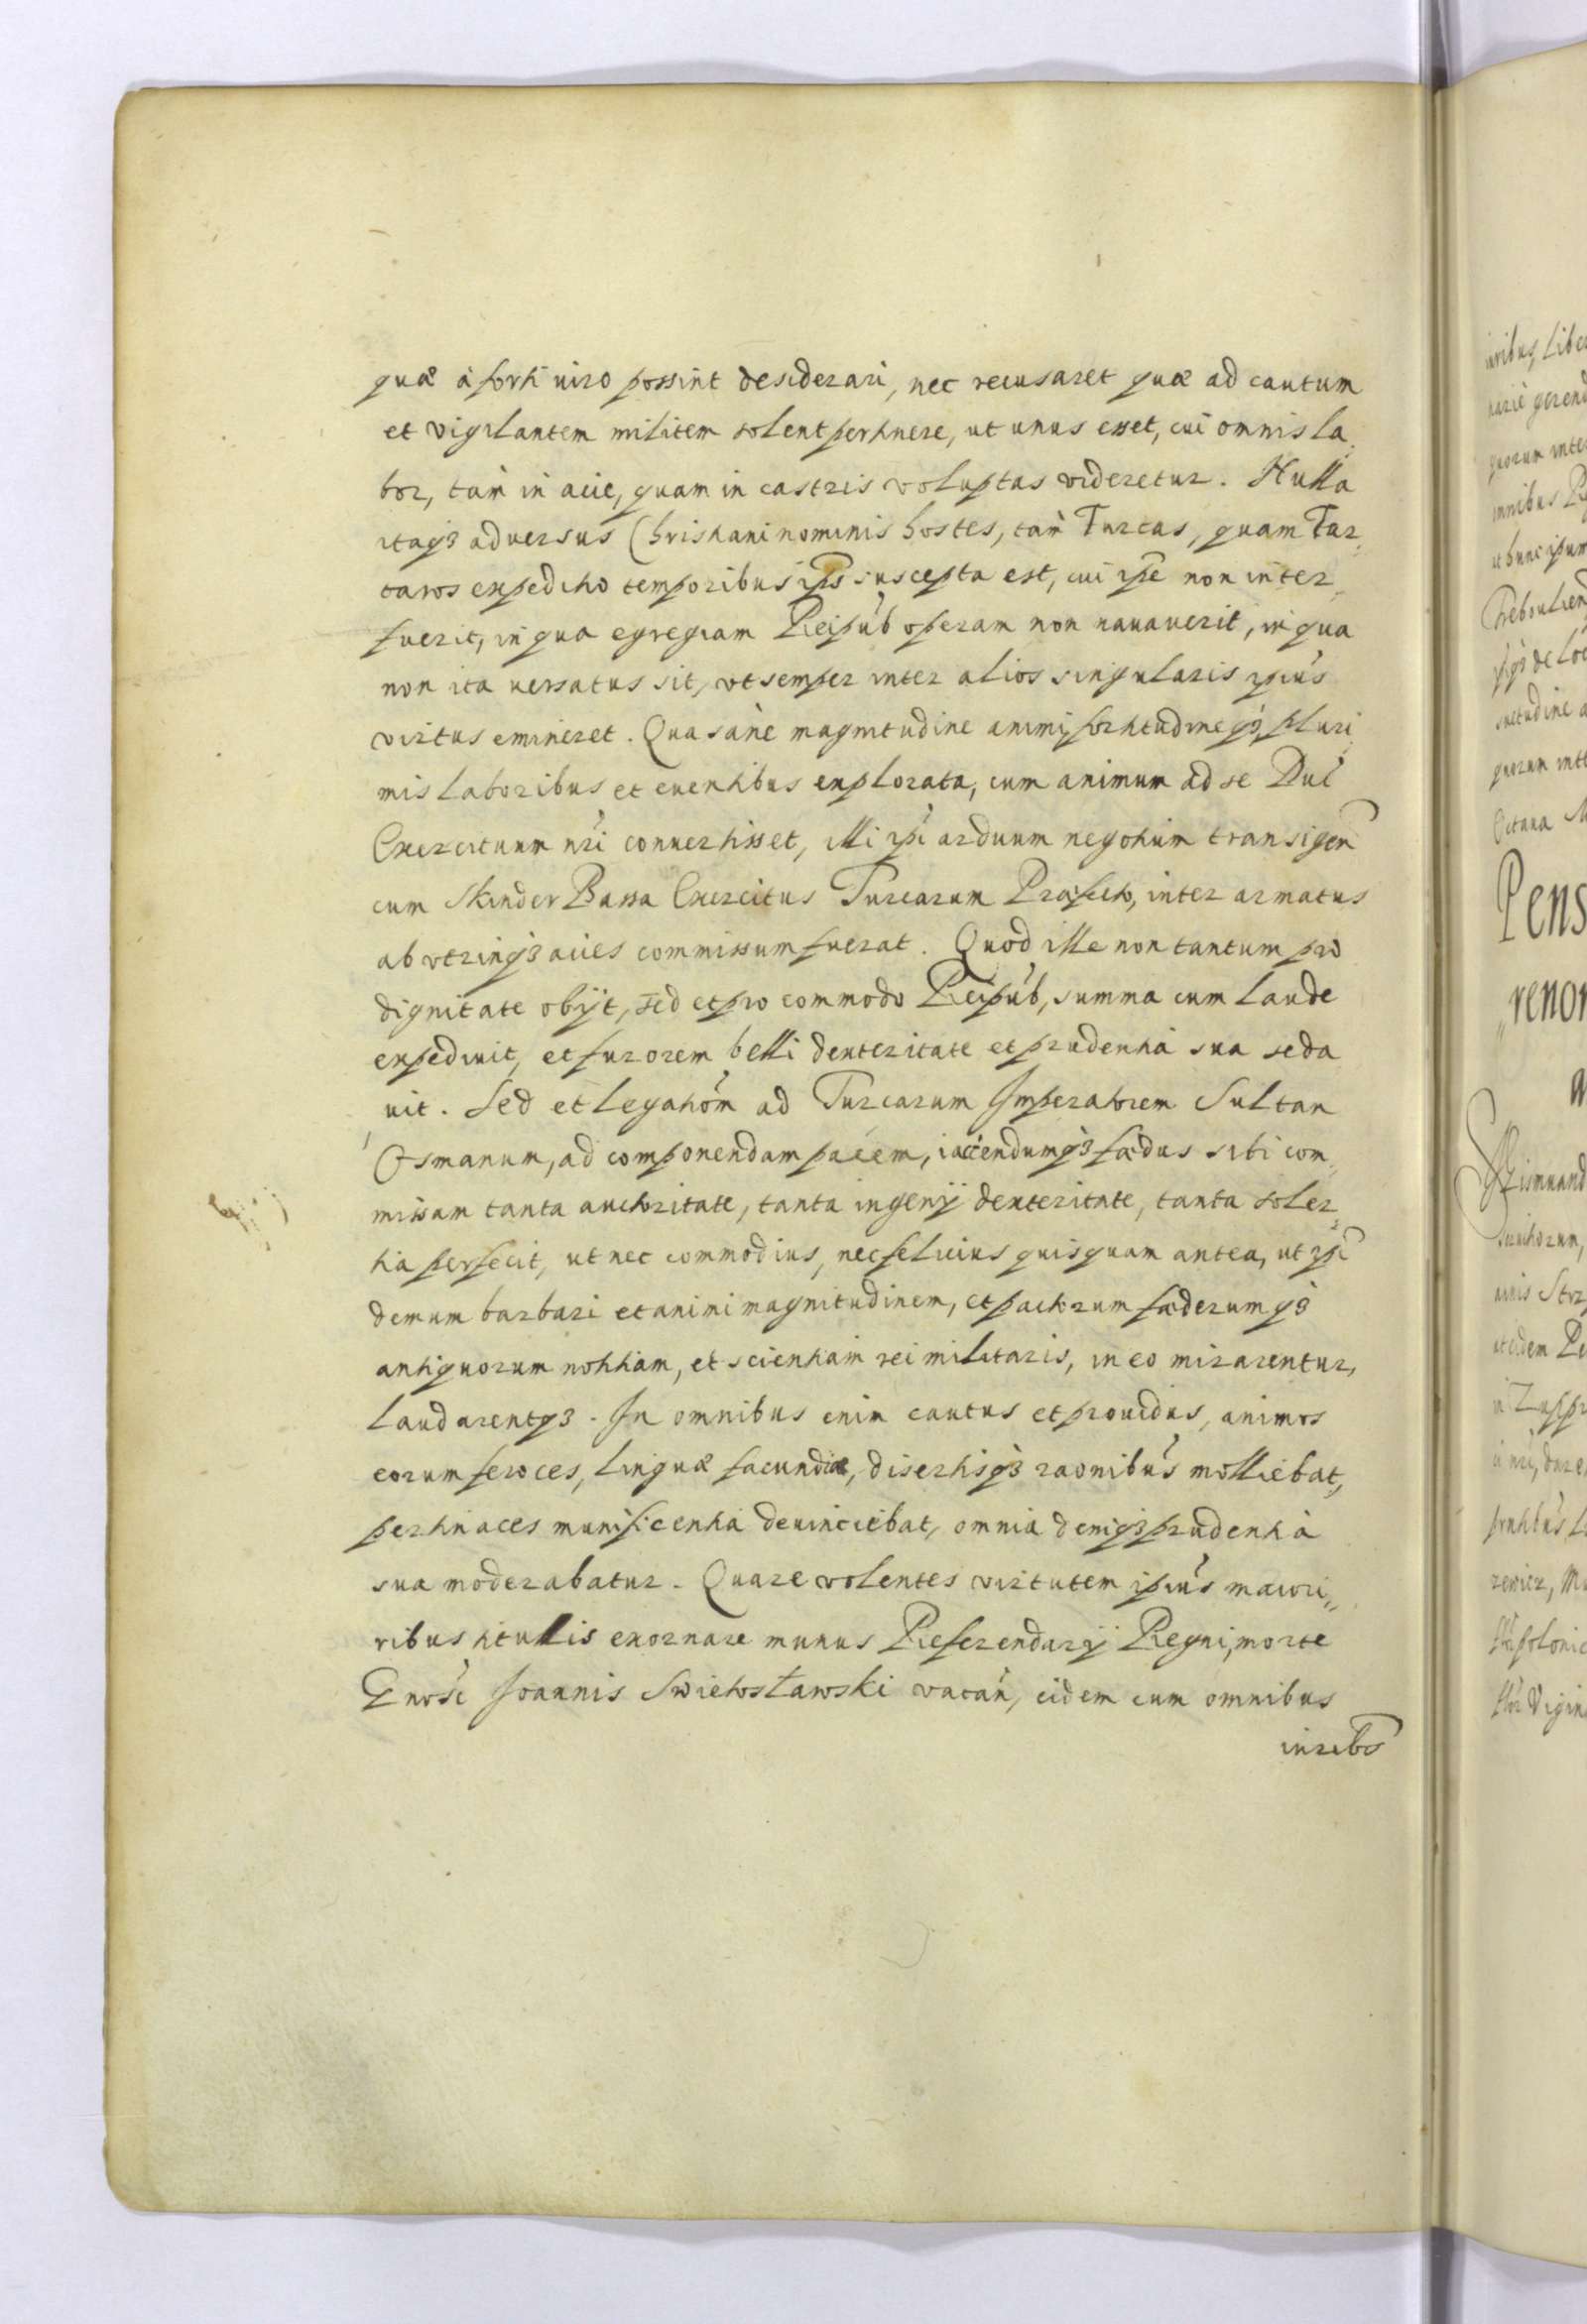 quæ à forti uiro possint desiderari, nec recusaret quæ ad cautum
et vigilantem militem solent pertinere, ut unus esset, cui omnis la,
bor, tam in acie, quam in castris voluptas videretur. Nulla
itaq3 adversus Christiani nominis hostes, tam Turcas, quam Tar,
taros expeditio temporibus ips suscepta est, cui ipe non inter,
fuerit, in qua egregiam Reipub operam non nauauerit, in qua
non ita uersatus sit, vt semper inter alios singularis ipius
virtus emineret. Qua sanè magnitudine animi, fortitudineq3, pluri,
mis laboribus et euentibus explorata, cum animum ad se Dul
Exercituum nri conuertisset, illi ipi arduum negotium transigen
cum Skinder Bassa Exercitus Turcarum Præfecto, inter armatus
ab vtrinq3 acies commissum fuerat. Quod ille non tantum pro
dignitate obijt, sed et pro commodo Reipub, summa cum laude
expediuit, et furorem belli dexteritate et prudentia sua seda
uit. Sed et legationm ad Turcarum Imperatorem Sultan
Osmanum, ad componendam pacem, iaciendumq3 fædus sibi com,
missam tanta auctoritate, tanta ingenij dexteritate, tanta soler,
tia perfecit, ut nec commodius, nec felicius quisquam antea, ut ipi
demum barbari et animi magnitudinem, et pactorum fæderumq3
antiquorum notitiam, et scientiam rei militaris, in eo mirarentur,
laudarentq3. In omnibus enim cautus et prouidus, animos
eorum feroces, linguæ facundia, disertisq3 raonibus molliebat,
pertinaces munificentia deuinciebat, omnia deniq3 prudentia
sua moderabatur. Quare volentes virtutem ipius maiori,,
ribus titullis exornare munus Referendarij Regni, morte
Gnosi Joannis Swietosławski vacan, eidem cum omnibus
iuribs